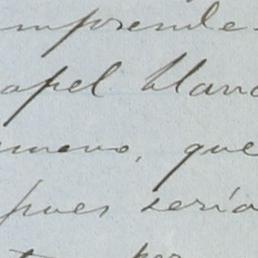 mprende
apel blanc
que
pues sería